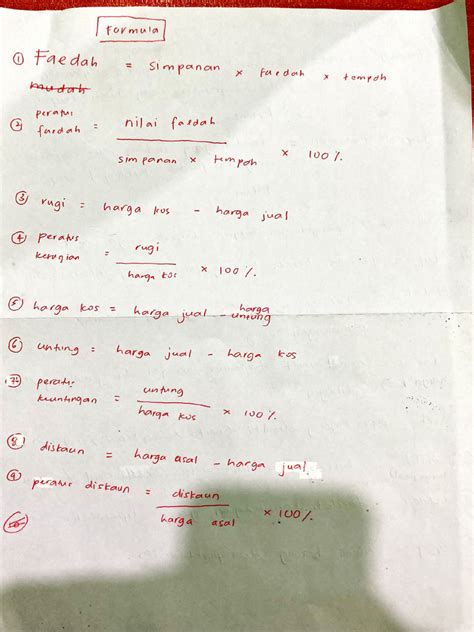 Formula
① Faedah = simpanan × faedah × tempoh
mudah
② peratus faedah = nilai faedah / simpanan × tempoh × 100 %
③ rugi = harga kos - harga jual
④ peratus kerugian = rugi / harga kos × 100 %.
⑤ harga kos = harga jual - harga untung
⑥ untung = harga jual - harga kos
⑦ peratus keuntungan = untung / harga kos × 100 %.
⑧ diskaun = harga asal - harga jual
⑨ peratus diskaun = diskaun / harga asal × 100 %.